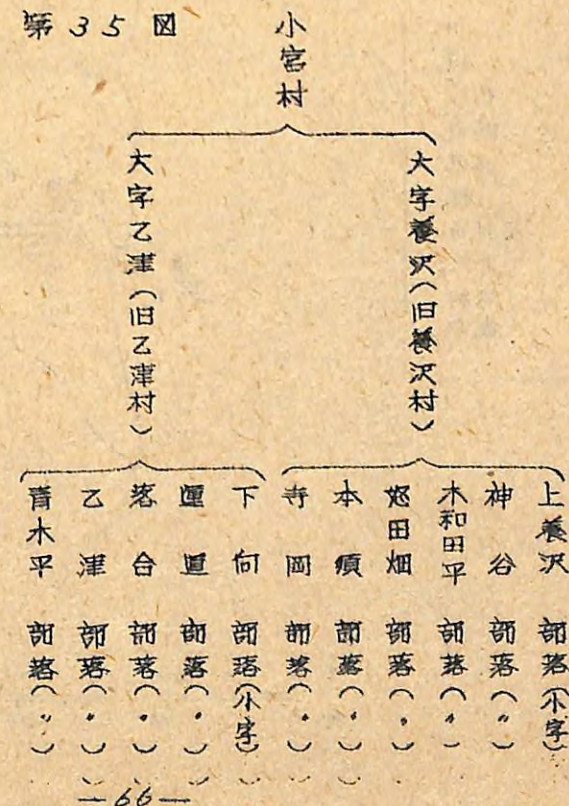 第35図
小宮村
大字養沢(旧養沢村)
上養沢 部落(小字)
神谷 部落(〃)
木和田平 部落(〃)
怒田畑 部落(〃)
本須 部落(〃)
寺岡 部落(〃)
大字乙津(旧乙津村)
下向 部落(小字)
部落(〃)
落合 部落(〃)
乙津 部落(〃)
青木平 部落(〃)
—66—